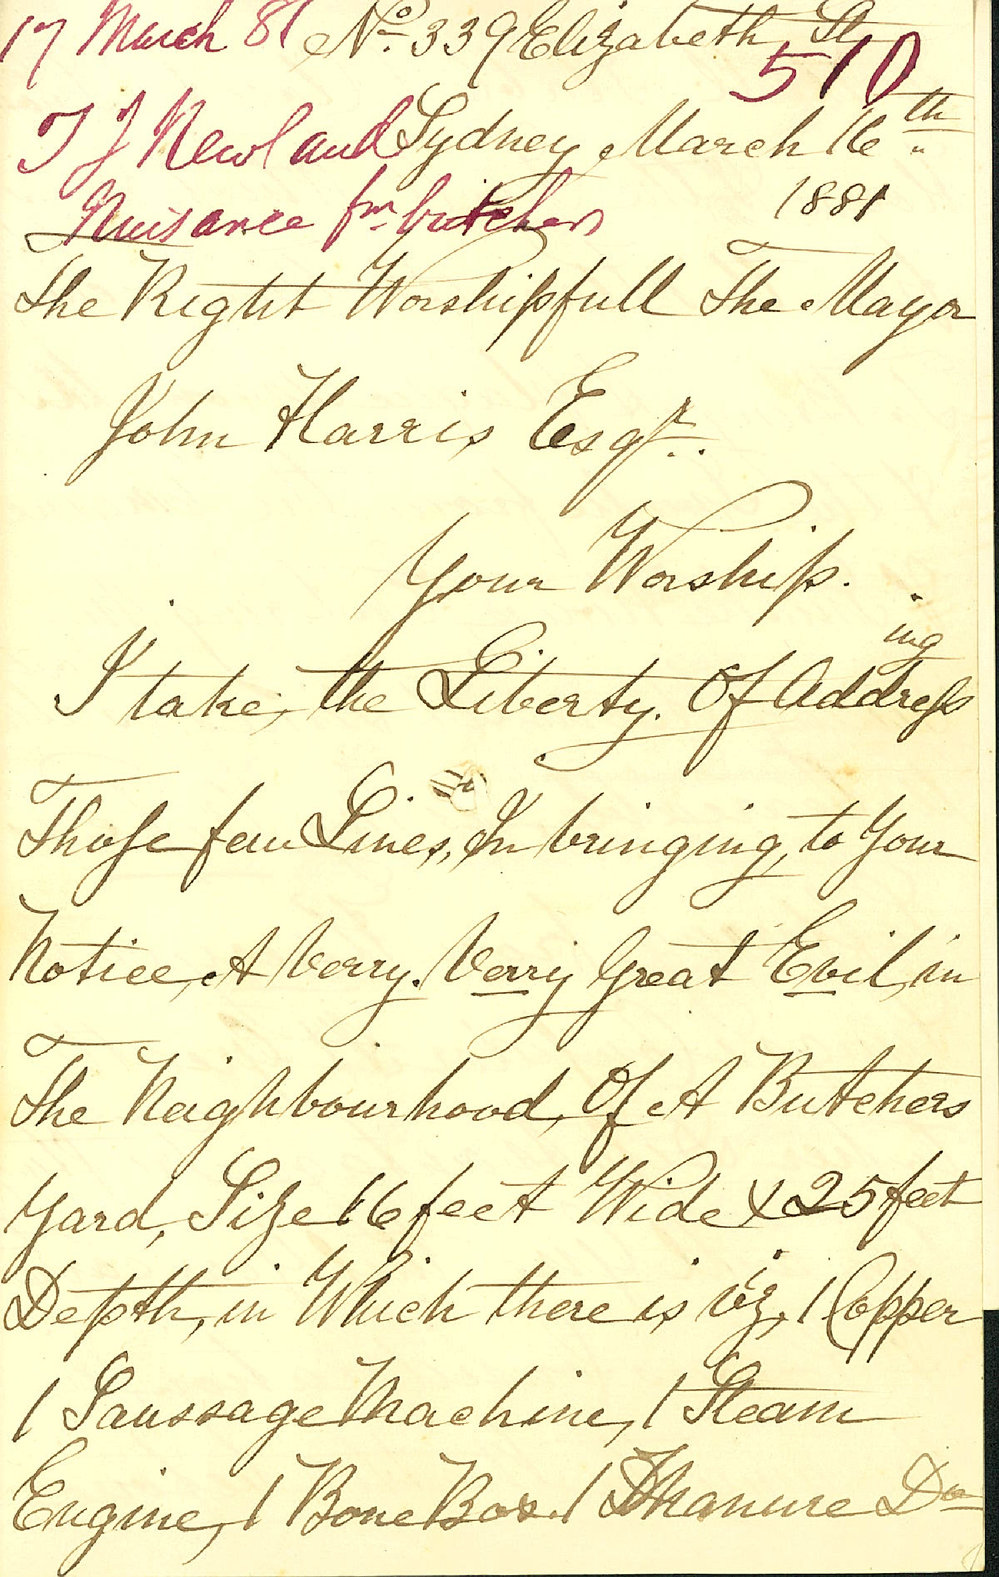 17 March 81 No. 339 Elizabeth St
510
T J Newland Sydney March 16th
1881
Nuisance fm butchers
The Right Worshipfull The Mayor
John Harris Esqr.
Your Worship.
ing
I take, the Liberty. Of Address
Those few Lines, In bringing, to Your
Notice, A Verry. Verry Great Evil, in
The Neighbourhood, Of A Butchers
Yard, Size 16 feet Wide x 25 feet
Depth, in Which there is viz, 1 Copper
1 Saussage Machine, 1 Steam
Engine, 1 Bone Box. 1 Manure Do